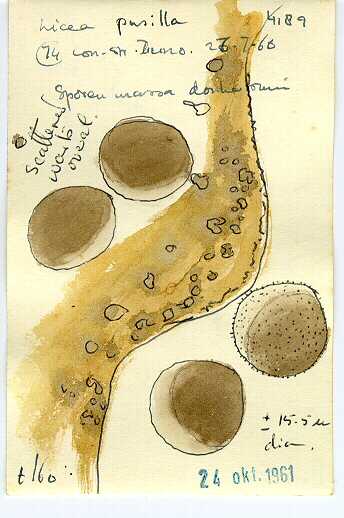 Licea pusilla 4189
74 con-str. 26-7-60
Sporen massa
Scattered
warts
overal.
± 15.5 u
dia.
t/60
24 okt. 1961